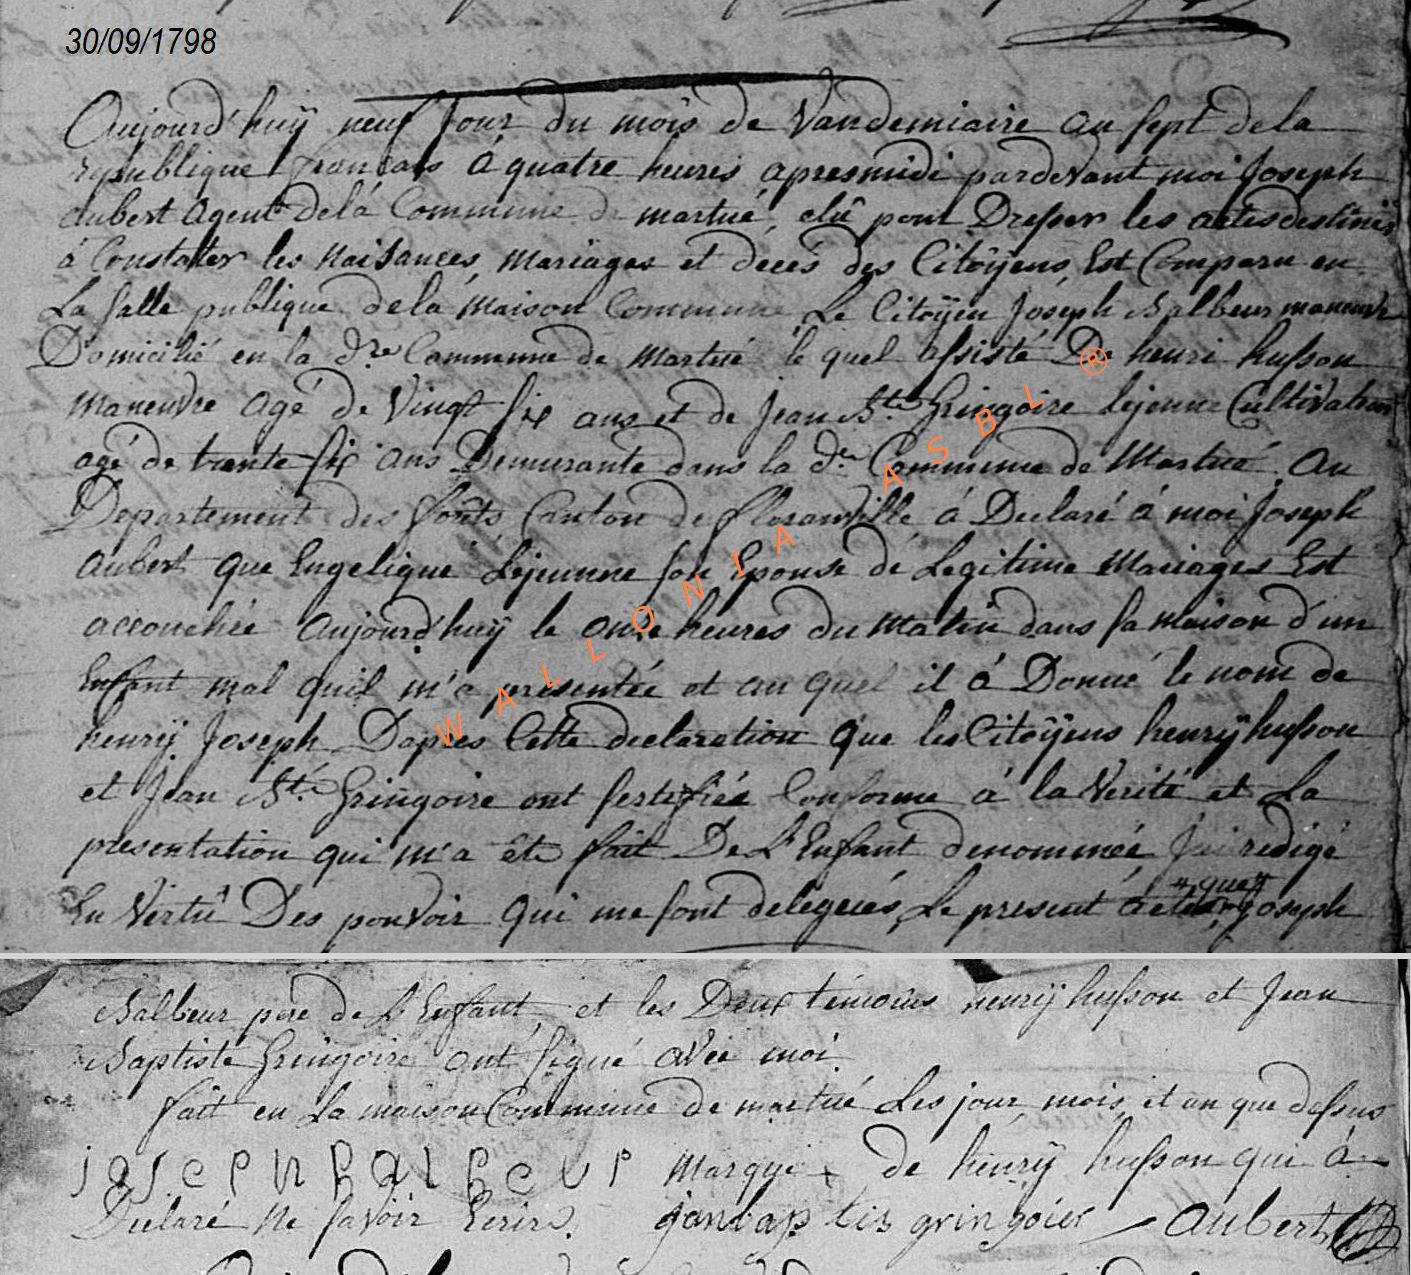 30/09/1798
Aujourd'huÿ neuf Jour du mois de Vandemiaire an sept dela
republique francais á quatre heures apresmidi pardevant moi Joseph
aubert agent delá Commune de martué, elû pour Dresser les actes destinés
á Constater les Naisances, Mariages et decés des Citoÿens Est Comparu en
La salle publique delá Maison Commune Le Citoÿen Joséph Balbeur maneuvre
Domicilié en la dre Commune de Martué le quel assisté De henri husson
Maneuvre agé de Vingt six ans et de Jean Bte Gringoire lejeune Cultivateur
agé de trente six ans Demeurante dans la de Commune de Martué. Au
Departement des forêts Canton de floranville á Declaré á moi Joseph
aubert que Engelique Lejeunne son Epouse de Legitime Mariages Est
accouchée aujourd'huÿ le onse heures du Matin dans sa Maison d'un
Enfant mal quil m'a présentée et au quel il á Donné le nom de
henrÿ Joseph Daprés Cette declaration que les Citoÿens henrÿ husson
et Jean Bte Gringoire ont sertifiée Conforme á la Verité et La
presentation qui m'a éte fait De L'Enfant denommée J'ai redigé
En Vertû Des pouvoir qui me sont delegués, Le present acte que Joseph
Balbeur pere de L'Enfant et les Deux témoins henrÿ husson et Jean
Baptiste Gringoire ont signé avec moi
fait en La maison Commune de martué Les jour mois et an que dessus
Joseph Balbeur Marque + de henrÿ husson qui á
Declaré Ne savoir Ecrire. janbaptis gringoier Aubert
WALLONIA ASBL ®